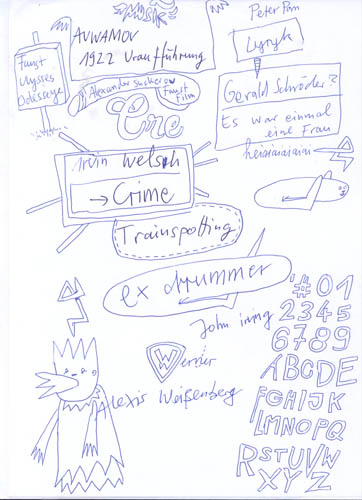 MUSIK
Peter Pan
AVWAMOV
1922 Uraufführung
Lyryk
Faust
Ulysses
Odessaye
Alexander Sucherow
Faust
Film
Gerald Schröder?
Es war einmal
eine Frau
Ere
heiaiaiaiaiaian
irvin welsch
→ Crime
Trainspotting
ex drummer
John irving
Werner
Alexis Weißenberg
#01
2345
6789
ABCDE
FGHIJK
LMNOPQ
RSTUVW
XYZ